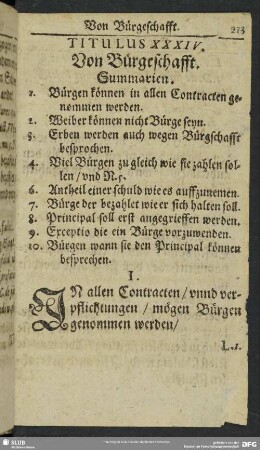 Von Bürgeschafft.
273
TITULUS XXXIV.
Von Bürgeschafft.
Summarien.
1. Bürgen können in allen Contracten ge-
nommen werden.
2. Weiber können nicht Bürge seyn.
3. Erben werden auch wegen Bürgschafft
besprochen.
4. Viel Bürgen zu gleich wie sie zahlen sol-
len / vnd N. 5.
6. Antheil einer schuld wie es auffzunemen.
7. Bürge der bezahlet wie er sich halten soll.
8. Principal soll erst angegrieffen werden.
9. Exceptio die ein Bürge vorzuwenden.
10. Bürgen wann sie den Principal können
besprechen.
I.
IN allen Contracten / vnnd ver-
pflichtungen / mögen Bürgen
genommen werden /
L. 1.
SLUB
DFG